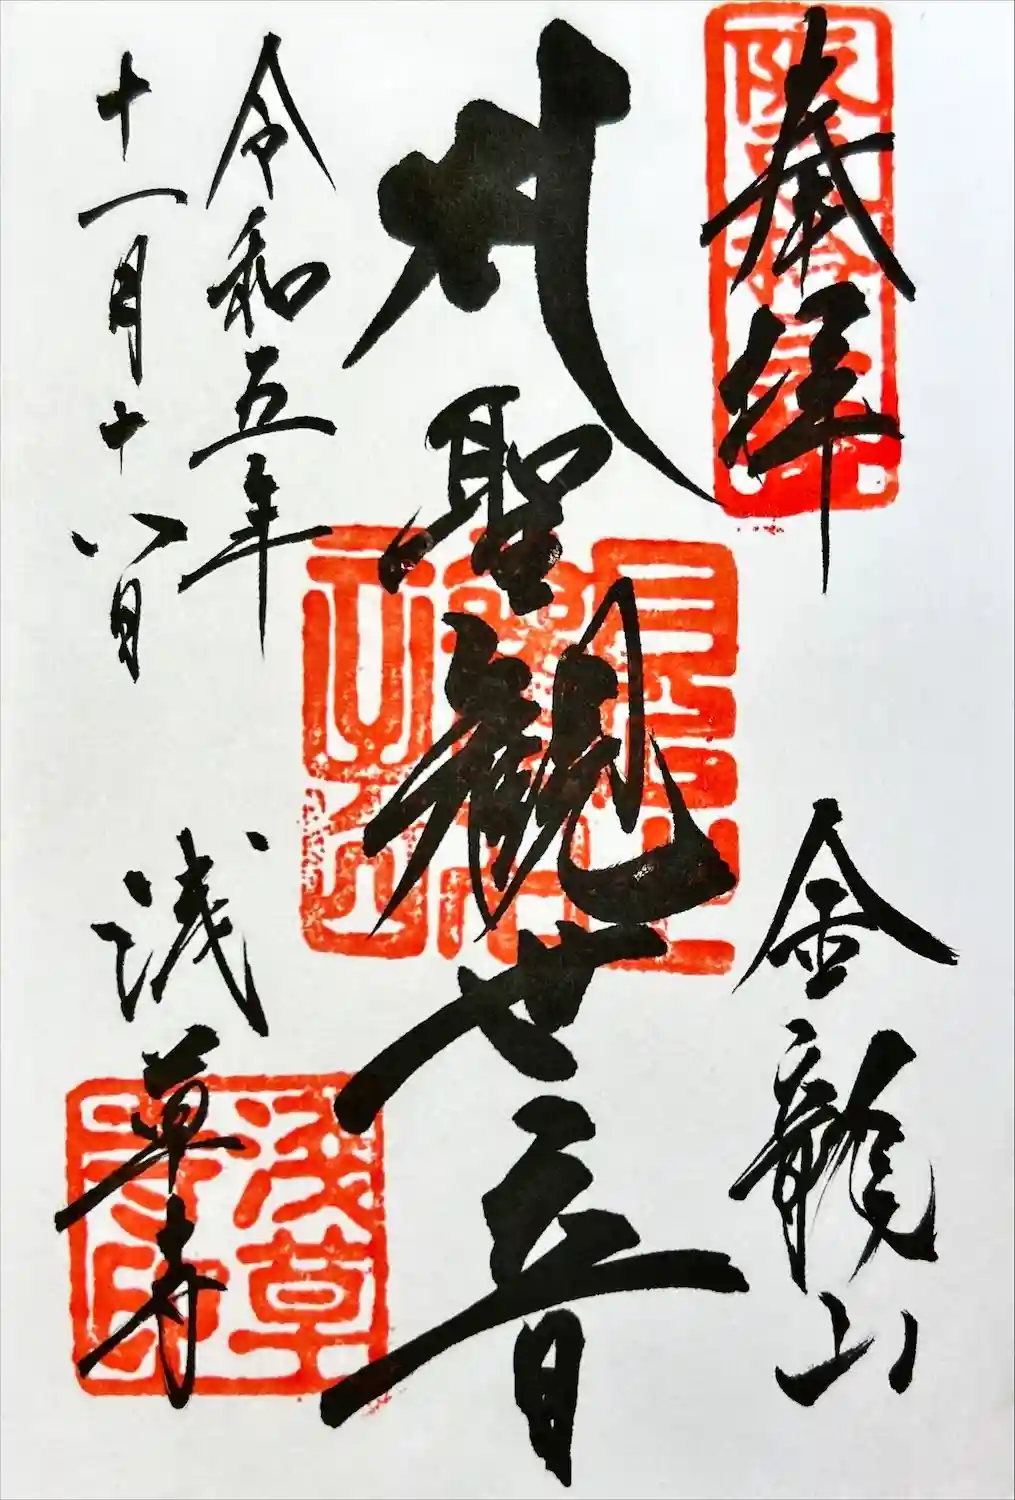 奉拝
金龍山
聖観世音
令和五年
十一月十八日
浅草寺
浅草寺印